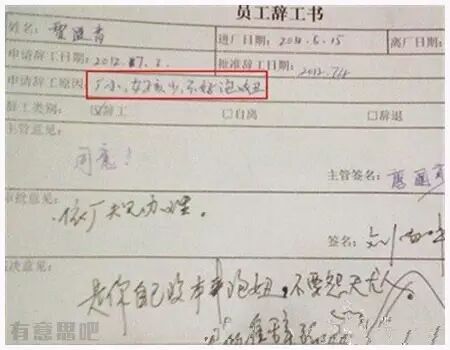 员工辞工书
姓名: 进厂日期: 2011.5.15 离厂日期:
申请辞工日期: 2012. 7. 2. 批准辞工日期: 2012.7.
申请辞工原因: 厂小,女孩少,不好泡妞
辞工类别: ☑辞工 □自离 □辞退
主管意见:
同意!
主管签名:
审批意见:
依厂规办理。
签名:
决意见:
是你自己没本事泡妞,不要怨天尤人
有意思吧